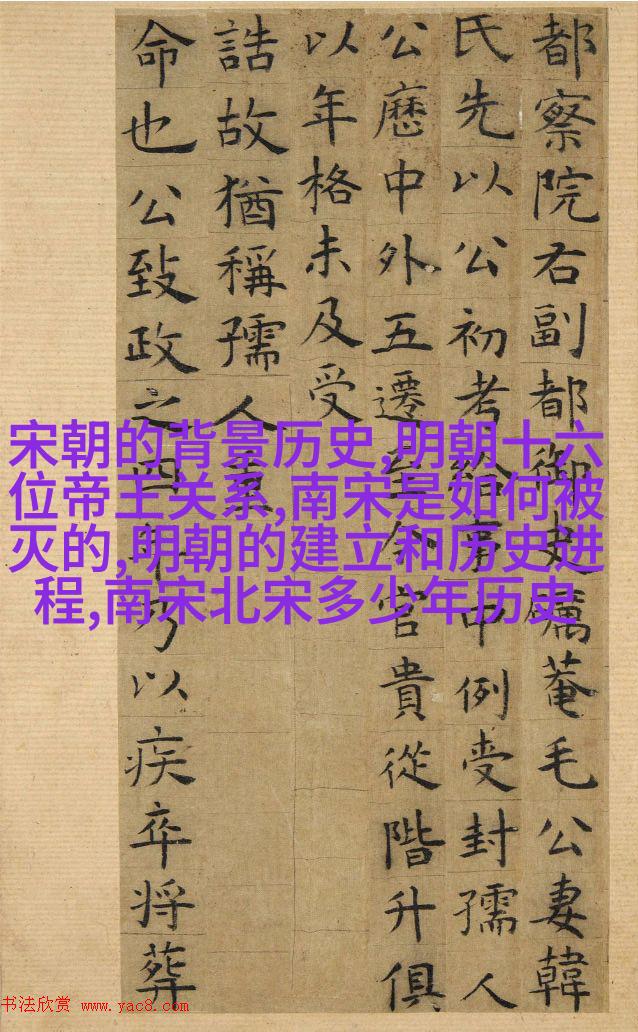 都察院右副都御史礪菴毛公妻韓
氏先以公初考給事中例受封孺人
公歷中外五遷至今官貴從階升俱
以年格未及受
誥故猶稱孺人蓋
命也公致政之四年乃以疾卒将葬
宋朝的背景历史,明朝十六
位帝王关系,南宋是如何被
灭的,明朝的建立和历史进
程,南宋北宋多少年历史
书法欣赏 www.yac8.com